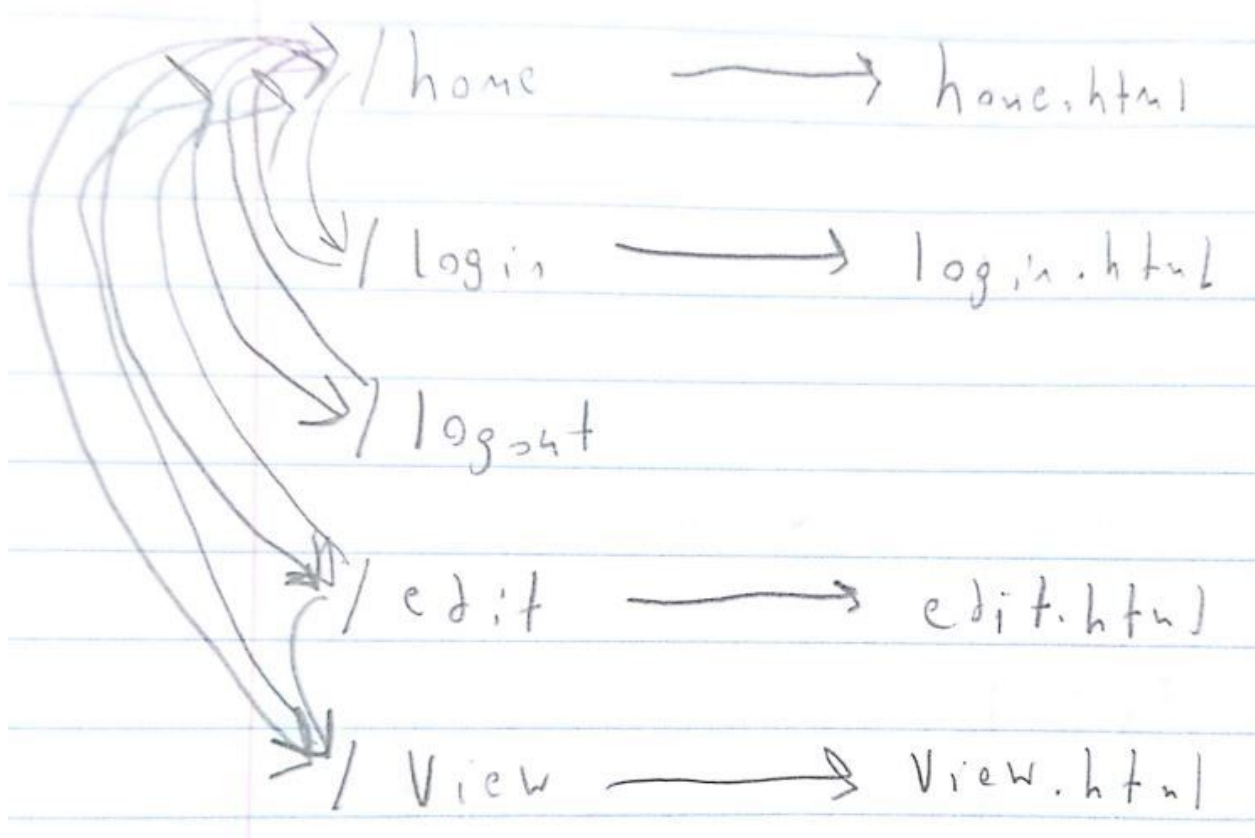 /home → home.html
/login → login.html
/logout
/edit → edit.html
/View → View.html